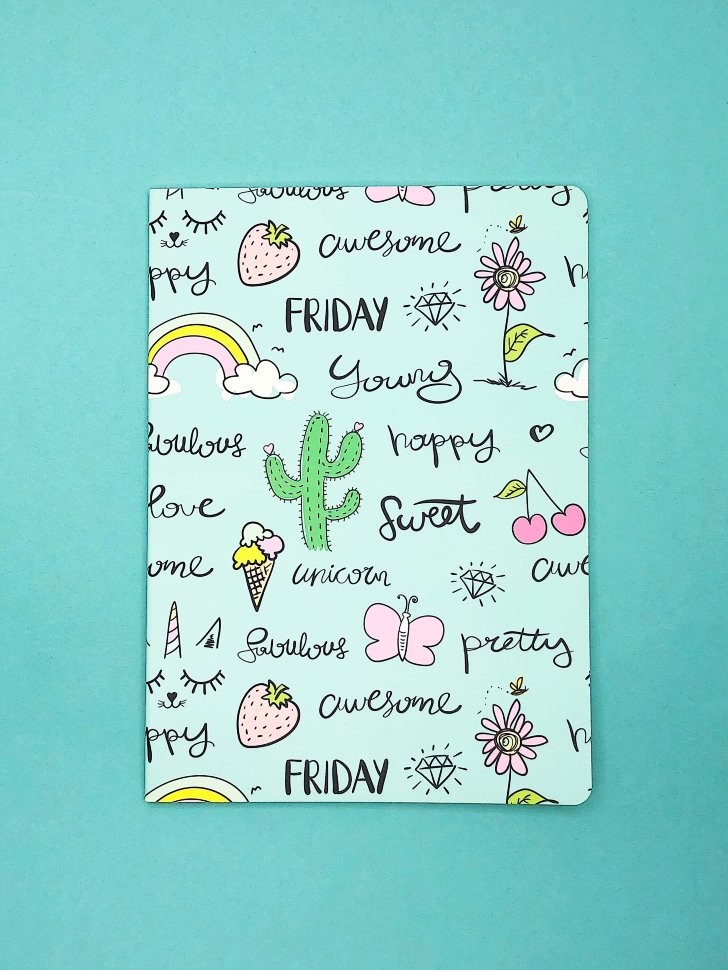 fabulous pretty
awesome
ppy
FRIDAY
Young
happy
love
Sweet
unicorn
fabulous pretty
awesome
ppy
FRIDAY